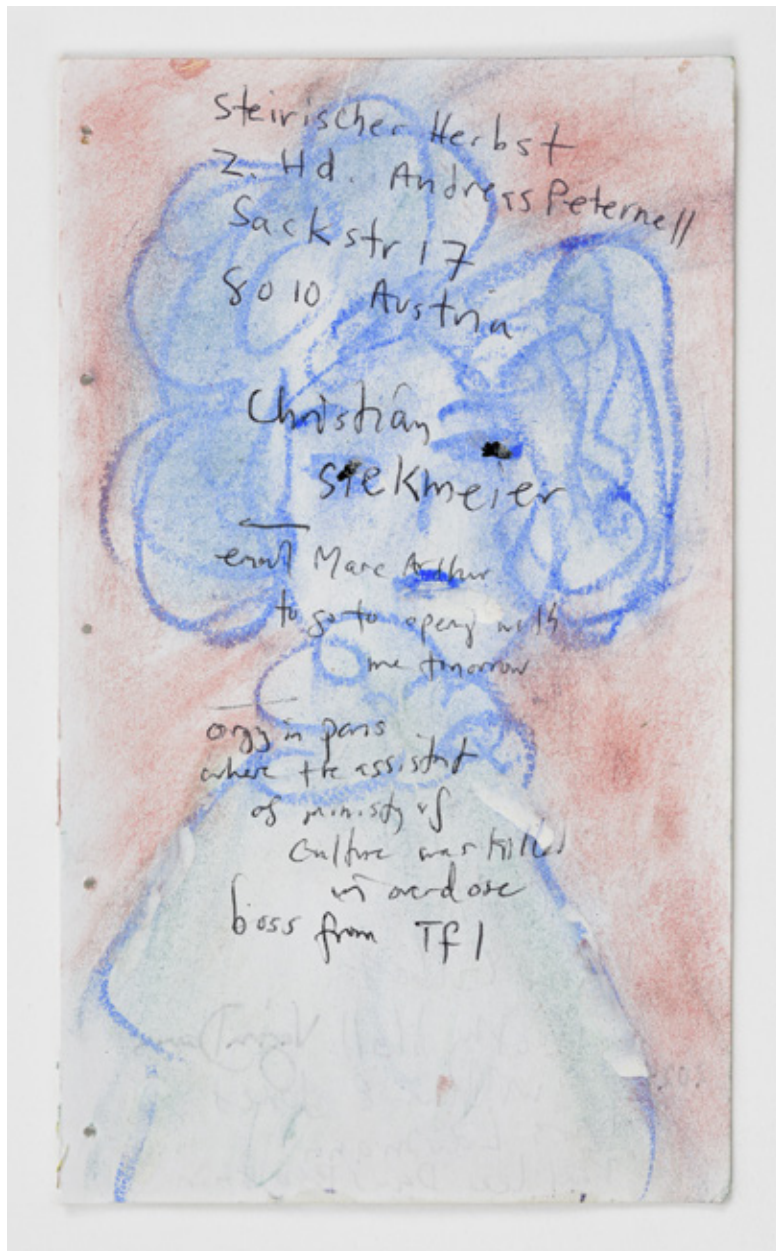 Steirischer Herbst
Z. Hd. Andreas Peternell
Sackstr 17
8010 Austria
Christian
Siekmeier
email Marc Arthur
to go to opening with
me tomorrow
orgy in paris
where the assistant
of ministry of
Culture was killed
in overdose
boss from Tf1